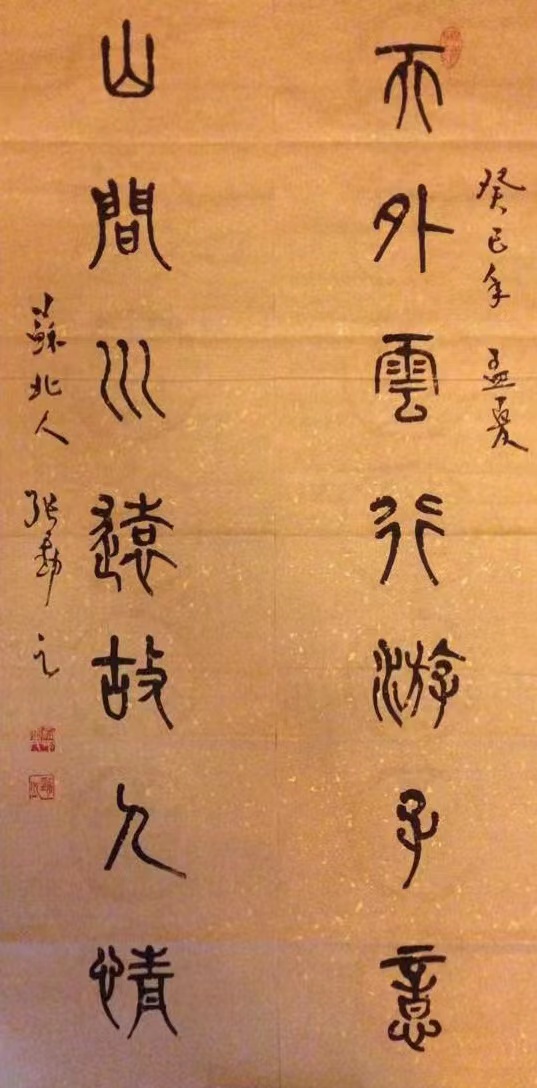 癸巳年 孟夏
天外雲行游子意
山間川遠故人情
蘇北人 張